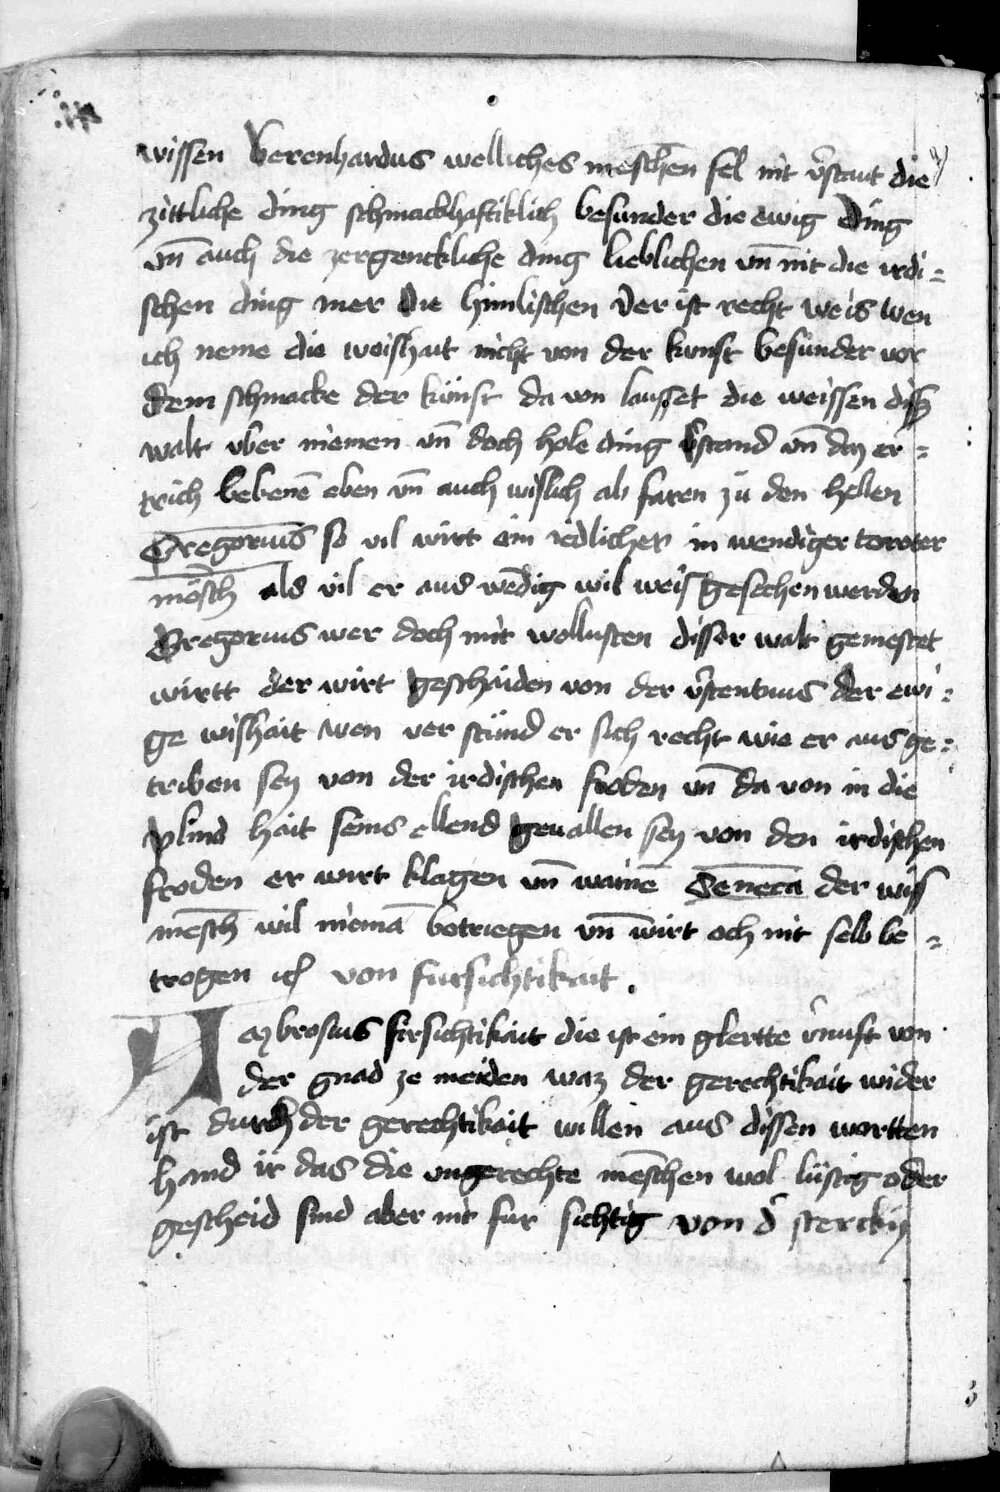 wissen berenhardus welliches mēschen sel nit v̄stant die
zittliche ding schmackhaftiklich besunder die ewig ding
vn̄ auch die zergenckliche ding lieblichen vn̄ nit die irdi=
schen ding mer die himlischen Der ist recht weis wen
ich neme die weishait nicht von der kunst besunder vor
dem schmacke der künst da von lausset die weissen diß
walt vber niemen vn̄ doch hole ding v̄stand vn̄ daz er=
trich bebenē eben vn̄ auch wislich ab faren zu den hellen
Gregorius so vil wirt ein iedlicher in wendiger torotter
mēsch als vil er aus wēdig wil weis gesechen werden
Gregorius wer doch mit wollusten disser walt gemestet
wirtt der wirt geschaiden von der v̄stentnus der ewi=
ge wishait wen ver stünd er sich recht wie er aus ge=
triben sey von der irdischen froden vn̄ da von in die
plind hait seins ellend geuallen sey von den irdischen
froden er wirt klagen vn̄ wainē Seneca der wis
mēsch wil niemā betriegen vn̄ wirt och nit selb be=
trogen von fursichtikait.
Ambrosius firsichtikait die ist ein glertte v̄nuft von
der gnad ze meiden waz der gerechtikait wider
ist durch der gerechtikait willen aus dissen wortten
hand ir das die ungerechte mēschen wol lüstig oder
gescheid sind aber nit fur sichtig von d' sterckin